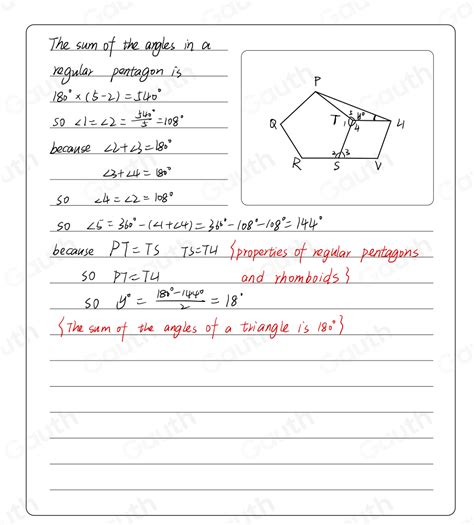 The sum of the angles in a
regular pentagon is
180° × (5-2) = 540°
so ∠1=∠2= 540°/5 =108°
because ∠2+∠3=180°
∠3+∠4=180°
so ∠4=∠2=108°
so ∠5=360°-(∠1+∠4)=360°-108°-108°=144°
because PT=TS TS=TU {properties of regular pentagons
so PT=TU and rhomboids}
so y°= (180°-144°)/2 =18°
{The sum of the angles of a triangle is 180°}
P
Q
T
1
5
y°
4
U
R
2
3
S
V
Gauth